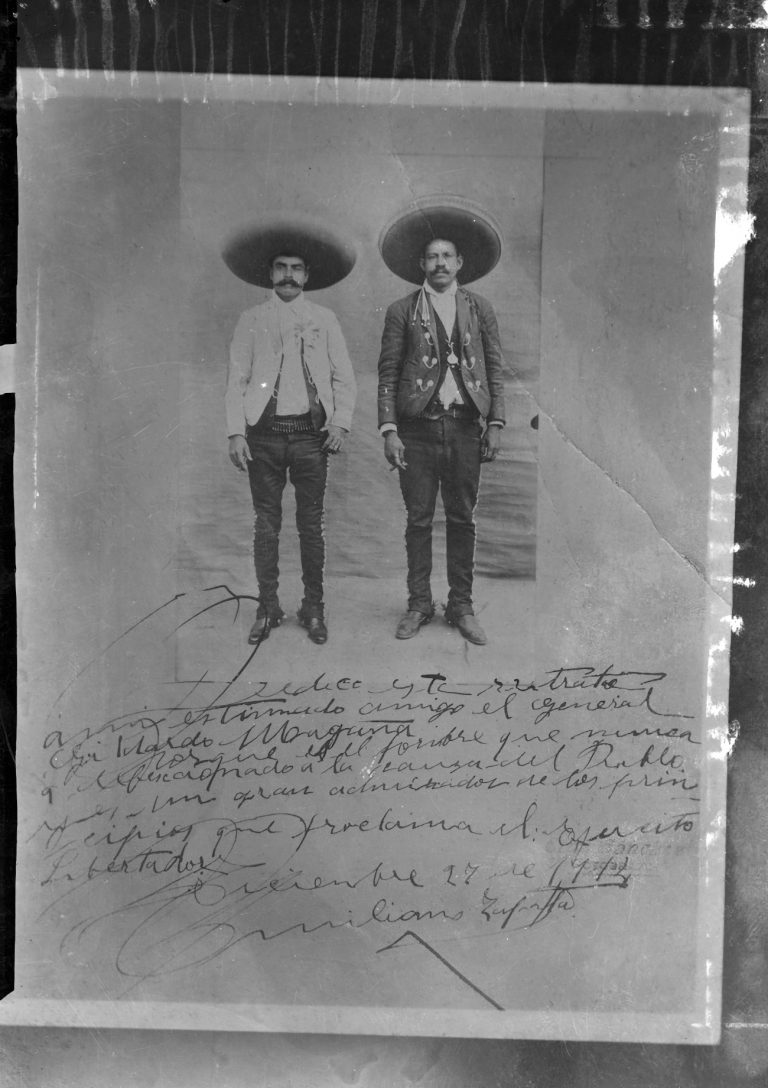 Dedico este retrato
a mi estimado amigo el General
Gildardo Magaña
porque es el hombre que nunca
a defeccionado a la causa del Pueblo
y es un gran admirador de los prin-
cipios que proclama el Ejercito
Libertador.
Diciembre 27 de
Emiliano Zapata